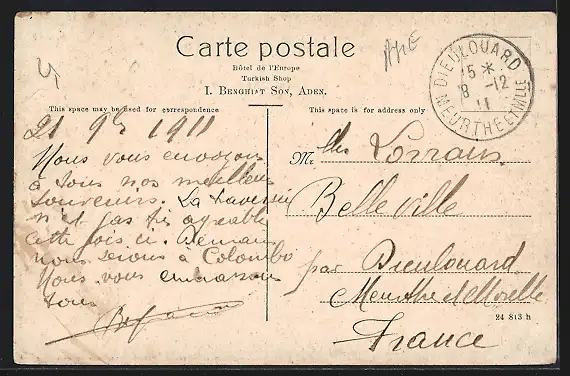 Carte postale
Hôtel de l'Europe
Turkish Shop
I. Benghiat Son, Aden.
This space may be used for correspondence
This space is for address only
DIEULOUARD
15 *
8 -12
11
MEURTHE ET MLLE
21 9bre 1911
Nous vous envoyons
à tous nos meilleurs
souvenirs. La traversée
n'est pas très agréable
cette fois ci. Demain
nous serons à Colombo
Nous vous embrassons
tous
M. Lorrain
Belleville
par Dieulouard
Meurthe et Moselle
France
24 813 h